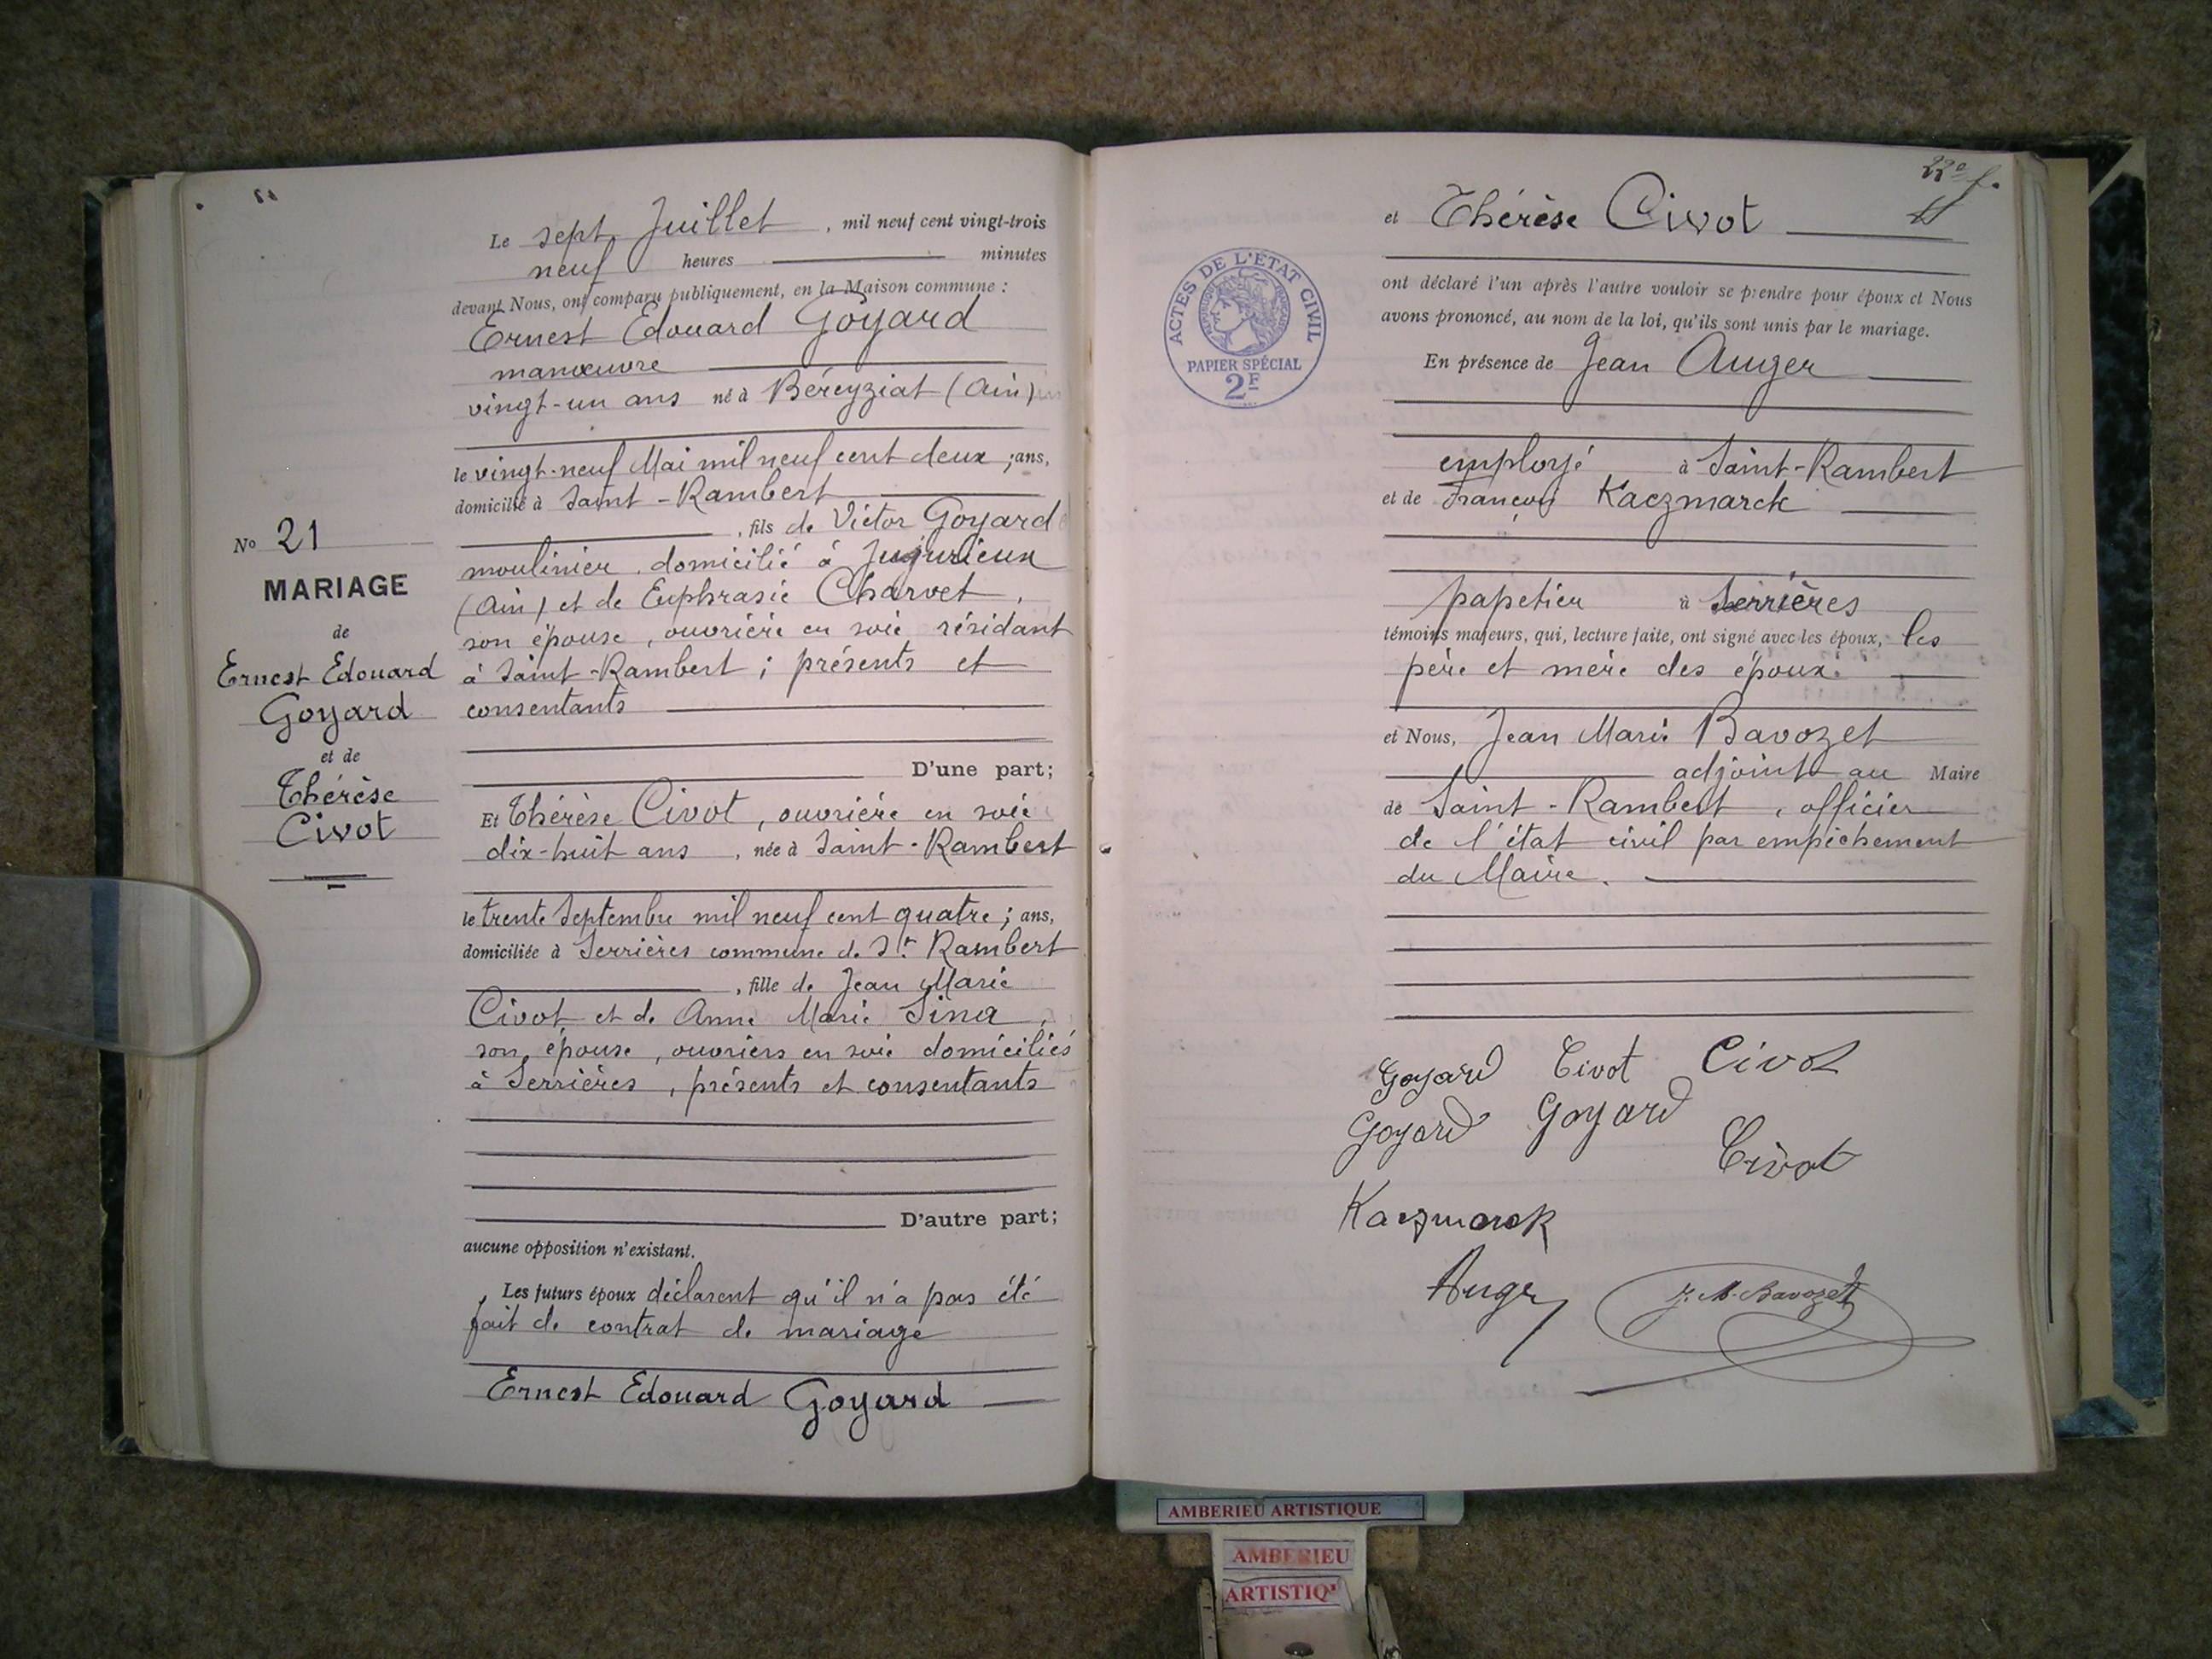 Le sept Juillet, mil neuf cent vingt-trois
neuf heures minutes
devant Nous, ont comparu publiquement, en la Maison commune :
Ernest Edouard Goyard
manœuvre
vingt-un ans né à Béreyziat (Ain)
le vingt-neuf Mai mil neuf cent deux ; ans,
domicilié à Saint-Rambert
, fils de Victor Goyard
moulinier, domicilié à Jujurieux
(Ain) et de Euphrasie Charvet,
son épouse, ouvrière en soie, résidant
à Saint-Rambert ; présents et
consentants
D'une part;
Et Thérèse Civot, ouvrière en soie
dix-huit ans, née à Saint-Rambert
le trente Septembre mil neuf cent quatre ; ans,
domiciliée à Serrières commune de St Rambert
, fille de Jean Marie
Civot et de Anne Marie Sina,
son épouse, ouvriers en soie domiciliés
à Serrières, présents et consentants
D'autre part;
aucune opposition n'existant.
Les futurs époux déclarent qu'il n'a pas été
fait de contrat de mariage
Ernest Edouard Goyard
No 21
MARIAGE
de
Ernest Edouard
Goyard
et de
Thérèse
Civot
22e f.
et Thérèse Civot
ont déclaré l'un après l'autre vouloir se prendre pour époux et Nous
avons prononcé, au nom de la loi, qu'ils sont unis par le mariage.
En présence de Jean Auger
employé à Saint-Rambert
et de François Kaczmarck
papetier à Serrières
témoins majeurs, qui, lecture faite, ont signé avec les époux, les
père et mère des époux.
et Nous, Jean Marie Bavozet
adjoint au Maire
de Saint-Rambert, officier
de l'état civil par empêchement
du Maire.
Goyard Civot Civot
Goyard Goyard
Civot
Kaczmarek
Auger
J. M. Bavozet
ACTES DE L'ÉTAT CIVIL
RÉPUBLIQUE FRANÇAISE
PAPIER SPÉCIAL
2F
AMBERIEU ARTISTIQUE
AMBERIEU
ARTISTIQ